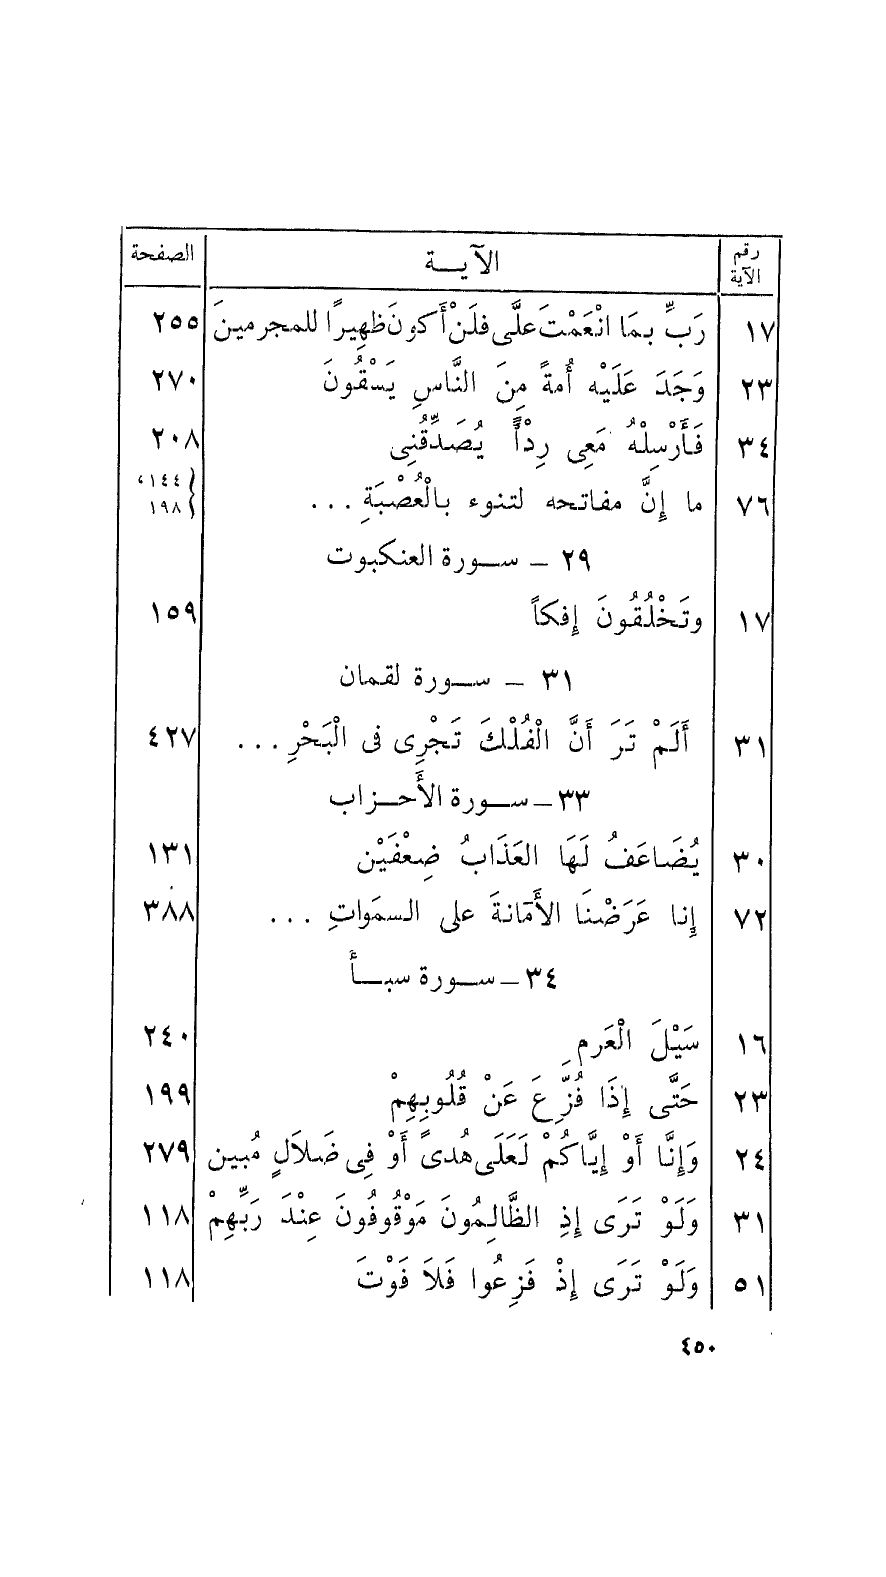 رقم الآية الآية الصفحة
١٧ رَبِّ بِمَا انْعَمْتَ علَّى فلَنْ أَكونَ ظهِيرًا للمجرمينَ ٢٥٥
٢٣ وَجَدَ عَلَيْه أُمةً مِنَ النَّاسِ يَسْقُونَ ٢٧٠
٣٤ فَأَرْسِلْهُ مَعِى رِدْأً يُصَدِّقُنِى ٢٠٨
٧٦ ما إِنَّ مفاتحه لتنوء بالْعُصْبَةِ ... ١٤٤، ١٩٨
٢٩ – سورة العنكبوت
١٧ وتَخْلُقُونَ إِفكاً ١٥٩
٣١ – سورة لقمان
٣١ أَلَمْ تَرَ أَنَّ الْفُلْكَ تَجْرِى فى الْبَحْرِ ... ٤٢٧
٣٣ – سورة الأَحزاب
٣٠ يُضَاعَفُ لَهَا العَذَابُ ضِعْفَيْن ١٣١
٧٢ إِنا عَرَضْنَا الأَمَانةَ على السمَواتِ ... ٣٨٨
٣٤ – سورة سبأ
١٦ سَيْلَ الْعَرمِ ٢٤٠
٢٣ حَتَّى إِذَا فُزِّعَ عَنْ قُلُوبِهِمْ ١٩٩
٢٤ وَإِنَّا أَوْ إِيَّاكُمْ لَعَلَى هُدىً أَوْ فِى ضَلاَلٍ مُبين ٢٧٩
٣١ وَلَوْ تَرَى إِذِ الظَّالِمُونَ مَوْقُوفُونَ عِنْدَ رَبِّهِمْ ١١٨
٥١ وَلَوْ تَرَى إِذْ فَزِعُوا فَلاَ فَوْتَ ١١٨
٤٥٠